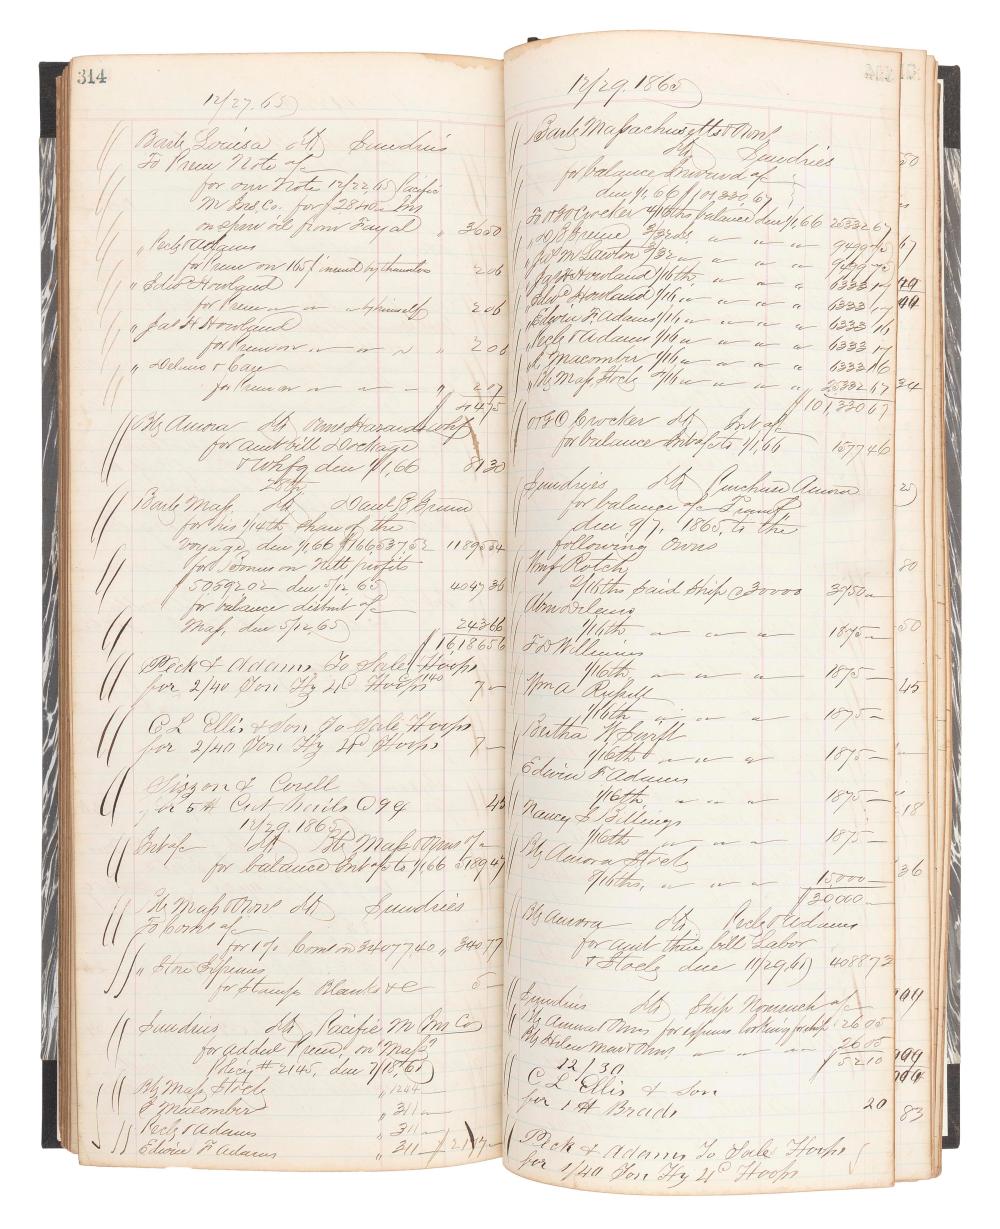 314
12/27.65
Bark Louisa Dr Sundries
To Prem Note a/c
for our Note 12/22.65 Pacific
M Ins. Co. for $2840 Ins
on sperm oil from Fayal " 3650
" Peck & Adams
for Prem on 165 insured by 206
" Edwd Howland
for Prem on " " by himself 206
" Jas H Howland
for Prem on " " " " 206
" Delano & Co
for Prem on " " " " 207
4475
Bk Aurora Dr Wm Hazard whf
for amt bill Dockage
& Whfg due 1/1,66 8130
28th
Bark Mass. Dr Danl B Greene
for his 1/14th share of the
voyage, due 1/1,66 $166537,52 1189554
for Bonus on Nett profits
50592,02 due 5/12 65 404736
for balance distribt a/c
Mass, due 5/12,65 24366
1618656
Peck & Adams, To Sale Hoops
for 2/40 Ton Hy 4C Hoops 140 7 —
C L Ellis & Son To Sale Hoops
for 2/40 Ton Hy 4C Hoops 7 —
Sisson & Covell
for 5 # Cut Nails @ 9¢ 45
12/29.1865
Int a/c Dr Bk Mass & Owns
for balance Int a/c to 1/1,66 518947
Bk Mass & Owns Dr Sundries
To Coms a/c
for 1% Coms on 340774,0 " 34077
" Store Expenses
for Stamps Blanks &c 5 —
Sundries Dr Pacific M Ins Co
for added Prem on "Mass"
Policy # 2145, due 7/18,65
Bk Mass Stock " 1244 —
E Macomber " 311 —
Peck & Adams " 311 —
Edwin F Adams " 311 — 2177 —
12/29.1865
Bark Massachusetts & Owns
Dr Sundries
for balance Inward a/c
due 1/1,66 $101,330,67
To O & G O Crocker 4/16ths balance due 1/1,66 2533267
" D B Greene 3/32ds " " " 949975
" Jos M Lawton 3/32 " " " " 949975
" Jas H Howland 1/16th " " " 633317
" Edwd Howland 1/16 " " " " 633317
" Edwin F. Adams 1/16 " " " " 633316
" Peck & Adams 1/16 " " " " 633317
" E Macomber 1/16 " " " " 633316
" Bk Mass, Stock 4/16 " " " " 2533267
10133067
O & G O Crocker Dr Int a/c
for balance Int a/c to 1/1,66 157746
Sundries Dr Purchase Aurora
for balance a/c Transf
due 9/7, 1865, to the
following Owns
Wm J Rotch
2/16ths said Ship @ 30000 3750 —
Abm Delano
1/16th " " " 1875 —
F D Williams
1/16th " " " 1875 —
Wm A Russell
1/16th " " " 1875 —
Bertha W Swift
1/16th " " " 1875 —
Edwin F Adams
1/16th " " " 1875 —
Nancy S Billings
1/16th " " " 1875 —
Bk Aurora Stock
8/16ths, " " " 15000 —
$30000 —
Bk Aurora Dr Peck & Adams
for amt their bill Labor
& Stock due 11/29,65 408873
Sundries Dr Ship Nonnuch a/c
Bk Aurora & Owns for expense looking for ship 2605
Bk Helen Mar & Owns " " " 2605
5210
12/30
C L Ellis & Son
for 1 # Brads 20
Peck & Adams To Sale Hoops
for 1/40 Ton Hy 4C Hoops